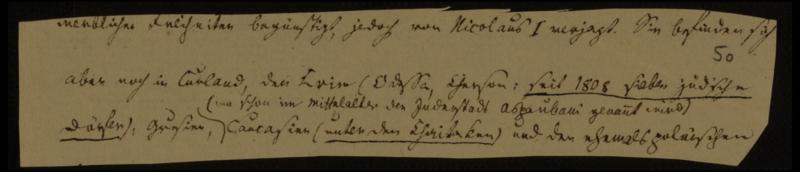 merblicher Freiheiten begünstigt, jedoch von Nicolaus I verjagt. Sie befinden sich
50
aber noch in Curland, den Krim (Odessa, Cherson: seit 1808 sieben jüdische
(wo schon im Mittelalter die Judenstadt genannt wird)
Dörfer), Grusien, Caucasien (unter den ) und den ehemals polnischen